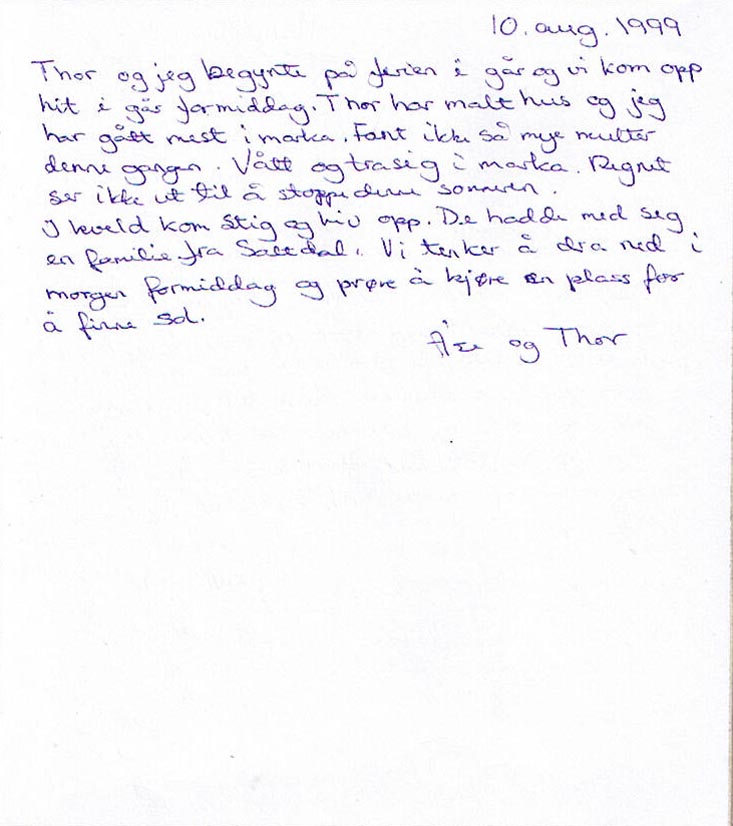 10. aug. 1999
Thor og jeg begynte på ferien i går og vi kom opp
hit i går formiddag. Thor har malt hus og jeg
har gått mest i marka. Fant ikke så mye multer
denne gangen. Vått og trasig i marka. Regnet
ser ikke ut til å stoppe denne sommeren.
I kveld kom Stig og Liv opp. De hadde med seg
en familie fra Saltdal. Vi tenker å dra ned i
morgen formiddag og prøve å kjøre en plass for
å finne sol.
Åse og Thor